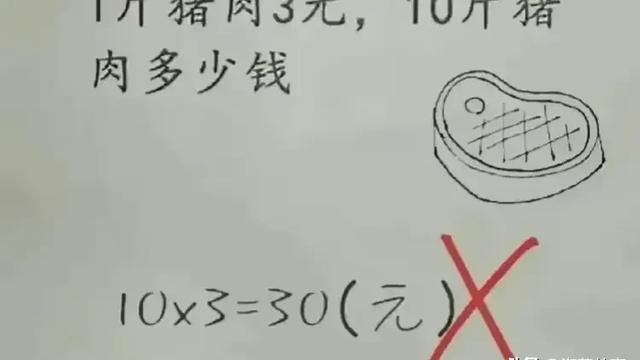 1斤猪肉3元，10斤猪
肉多少钱
10x3=30(元)